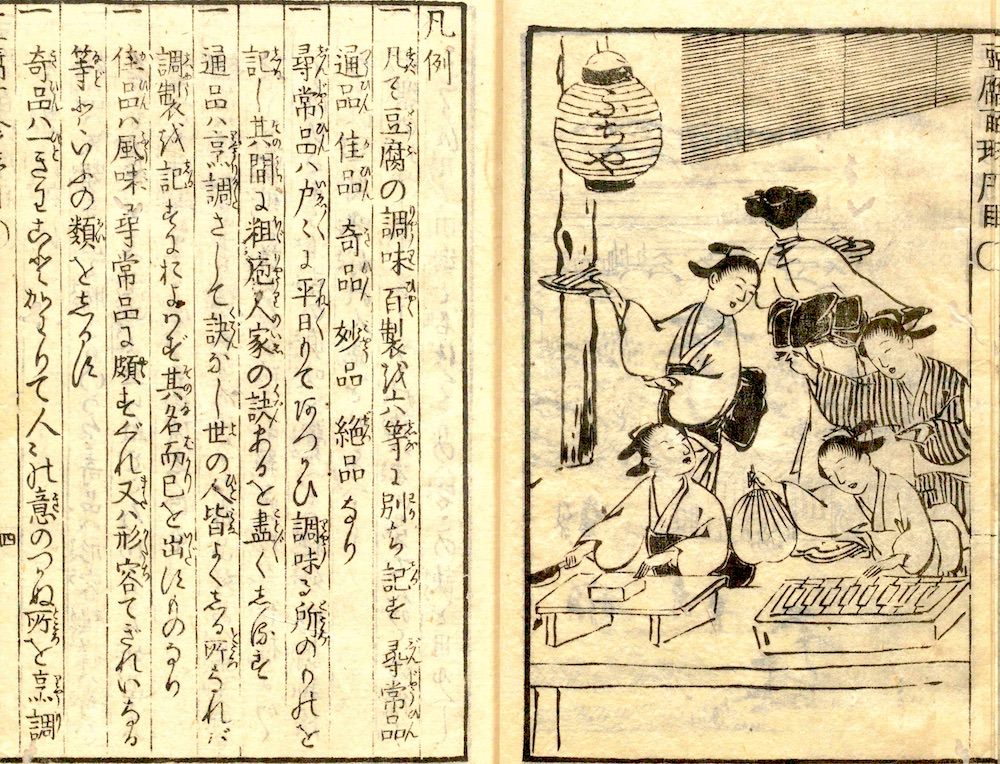 ふぢや
凡例
一 凡そ豆腐の調味百製を六等に別ち記す 尋常品
通品 佳品 奇品 妙品 絶品 なり
一 尋常品ハ戸々に平日もてあつかひ調味る所のものを
記し其間に粗庖人家の訣あるを盡くしるす
一 通品ハ烹調さして訣なし世の人皆よくしる所なれバ
調製を記すにおよハず其名而已を出すものなり
一 佳品ハ風味尋常品に頗すぐれ又ハ形容てぎれいなる
等といふの類をしるす
一 奇品ハ一きわことかハりて人の意のつかぬ所を烹調
四